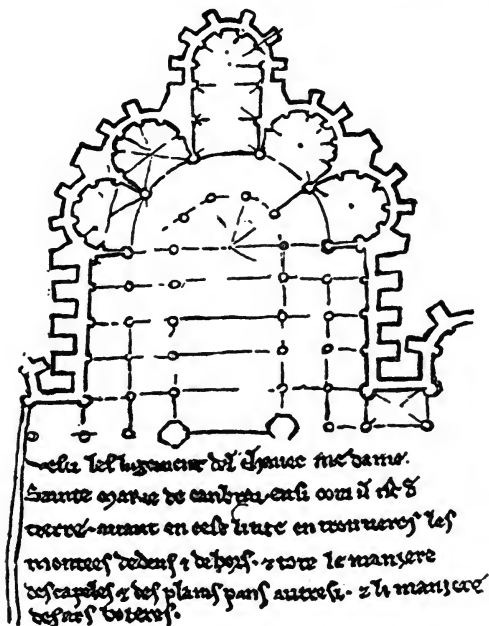 esci lesligement del chavec me dame.
Sainte marie de canbrai ensi com il ist
terre. avant en cest livre en trouveres les
montees dedens ⁊ dehors. ⁊ tote le maniere
des capeles ⁊ des plains pans autresi. ⁊ li maniere
des ars boteres.